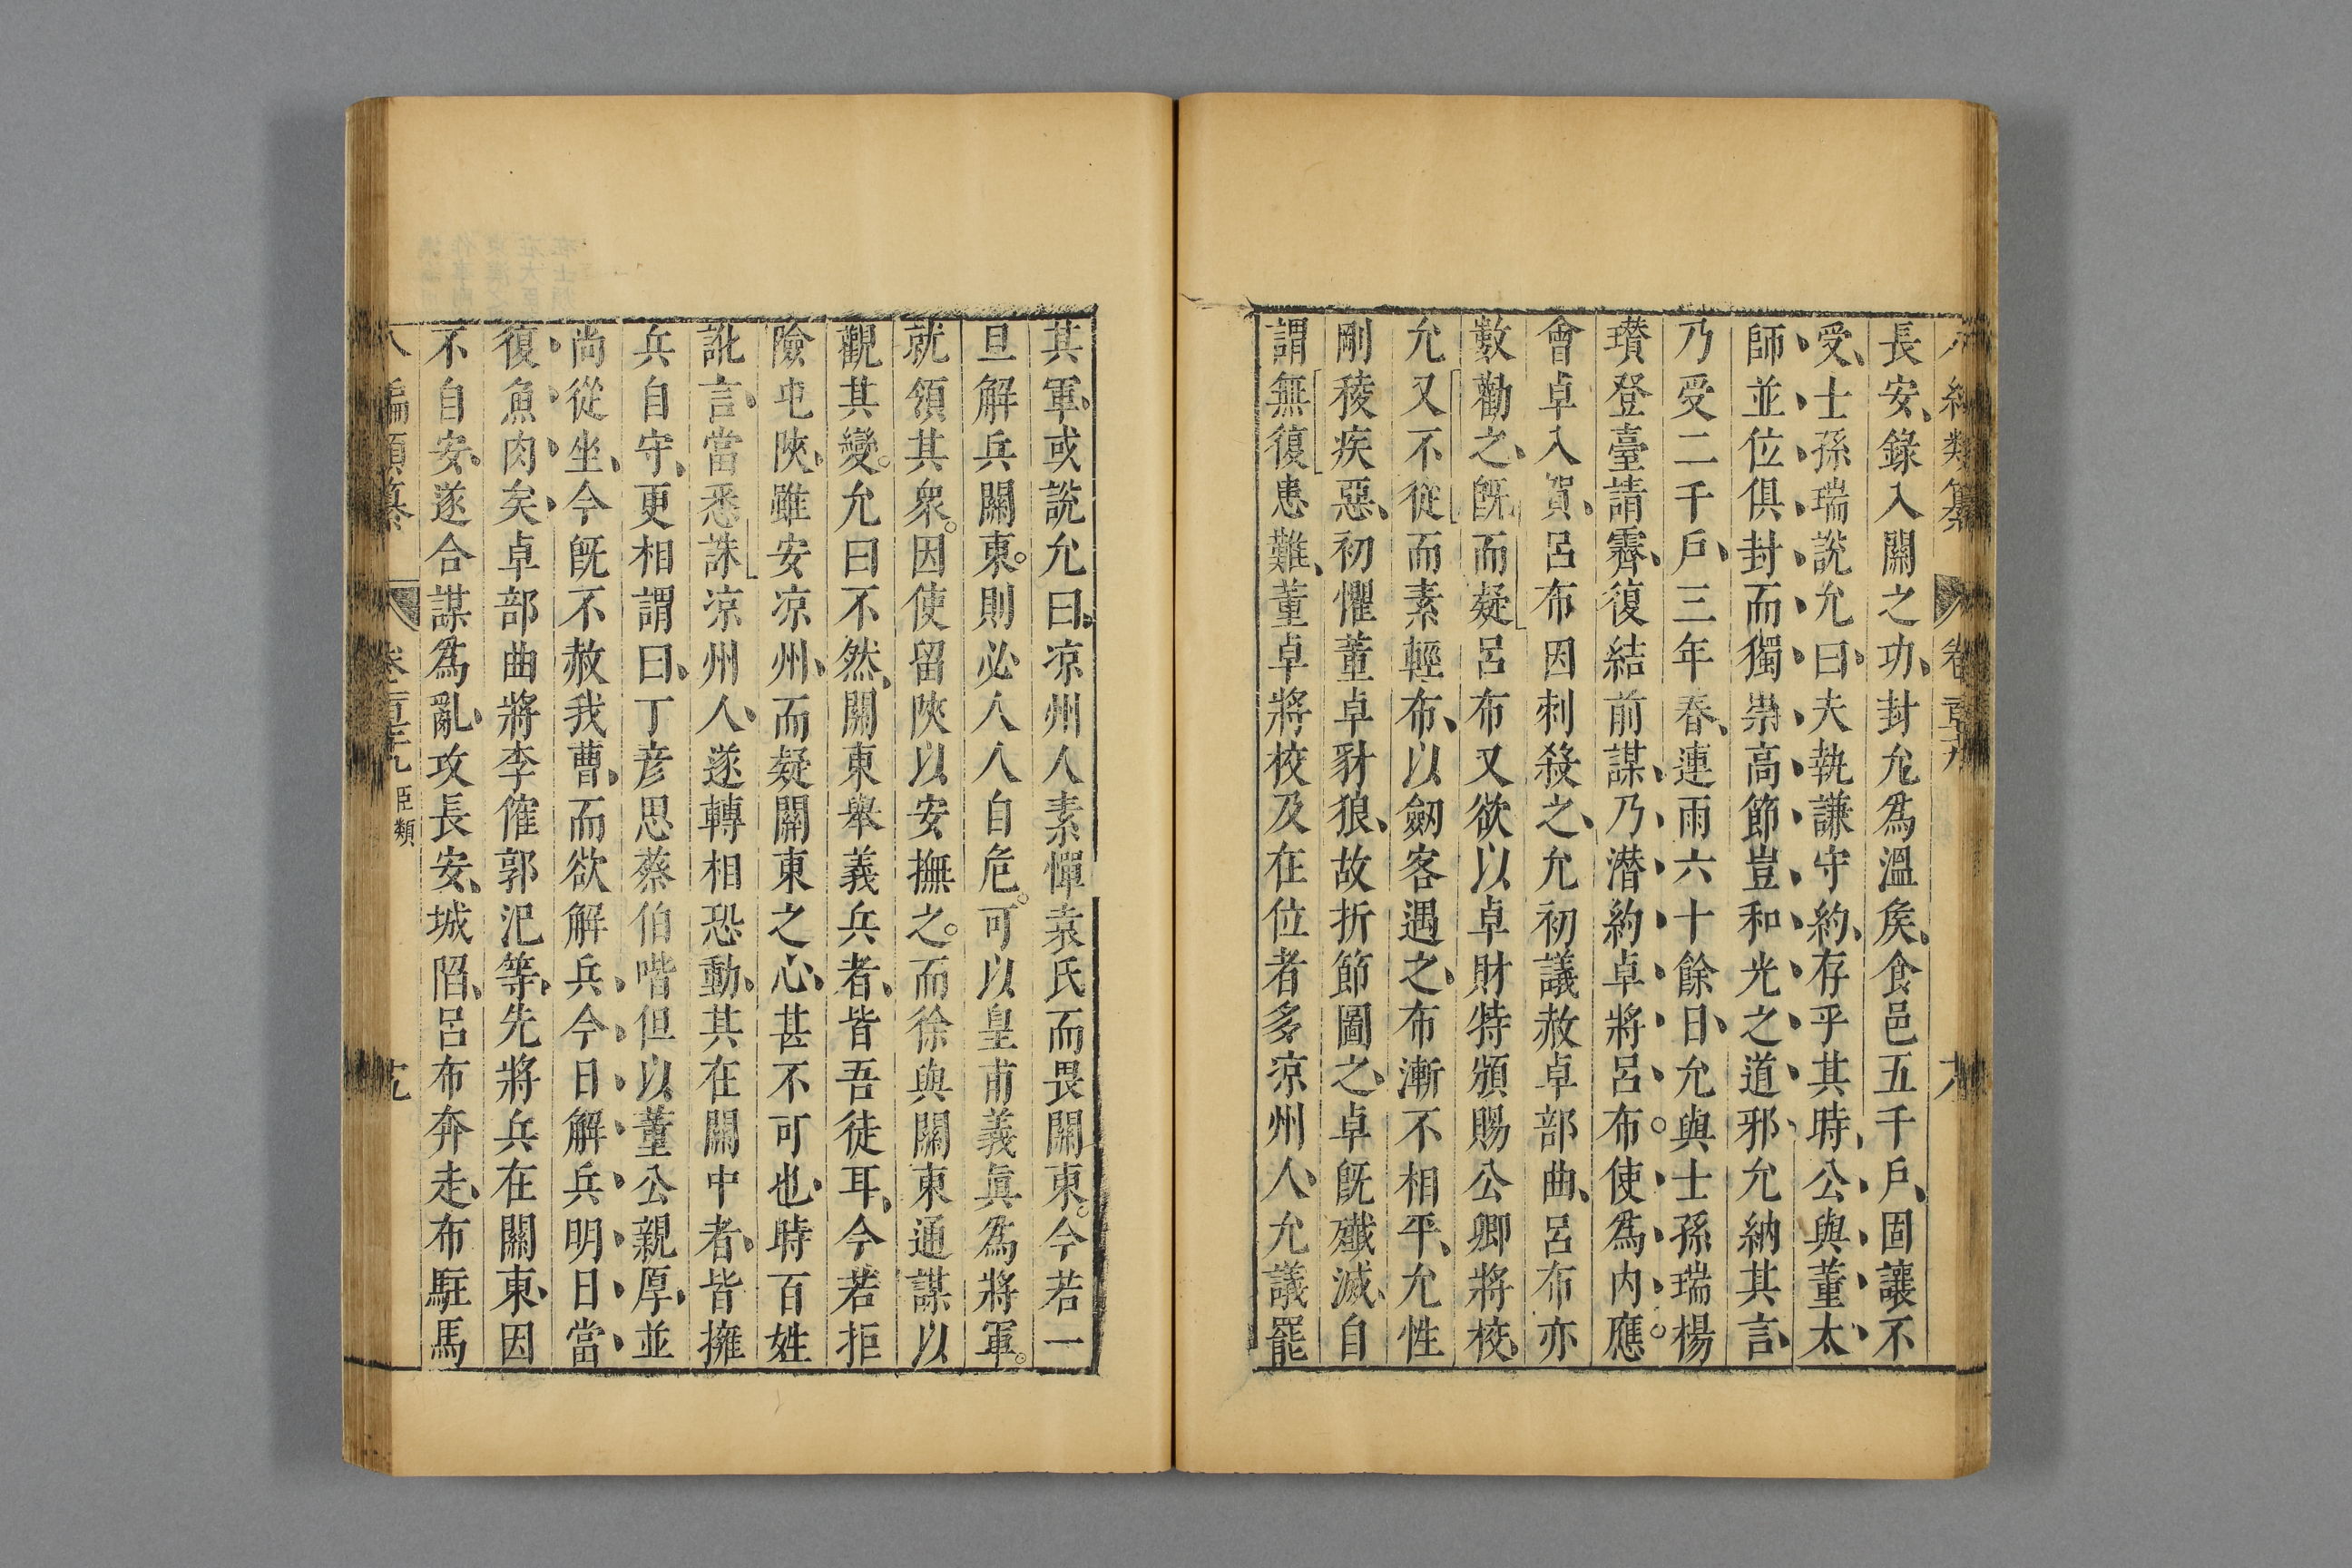 長安錄入關之功封允爲溫矦食邑五千戶固讓不
受士孫瑞說允曰夫執謙守約存乎其時公與董太
師並位俱封而獨崇高節豈和光之道邪允納其言
乃受二千戶三年春連雨六十餘日允與士孫瑞楊
瓚登臺請霽復結前謀乃潛約卓將呂布使爲內應
會卓入賀呂布因刺殺之允初議赦卓部曲呂布亦
數勸之旣而疑呂布又欲以卓財特頒賜公卿將校
允又不從而素輕布以劒客遇之布漸不相平允性
剛稜疾惡初懼董卓豺狼故折節圖之卓旣殲滅自
謂無復患難董卓將校及在位者多凉州人允議罷
其軍或說允曰凉州人素憚袁氏而畏關東今若一
旦解兵關東則必人人自危可以皇甫義眞爲將軍
就領其衆因使留陝以安撫之而徐與關東通謀以
觀其變允曰不然關東舉義兵者皆吾徒耳今若拒
險屯陝雖安凉州而疑關東之心甚不可也時百姓
訛言當悉誅凉州人遂轉相恐動其在關中者皆擁
兵自守更相謂曰丁彥思蔡伯喈但以董公親厚並
尚從坐今旣不赦我曹而欲解兵今日解兵明日當
復魚肉矣卓部曲將李傕郭汜等先將兵在關東因
不自安遂合謀爲亂攻長安城陷呂布奔走布駐馬
八編類纂 卷 臣類